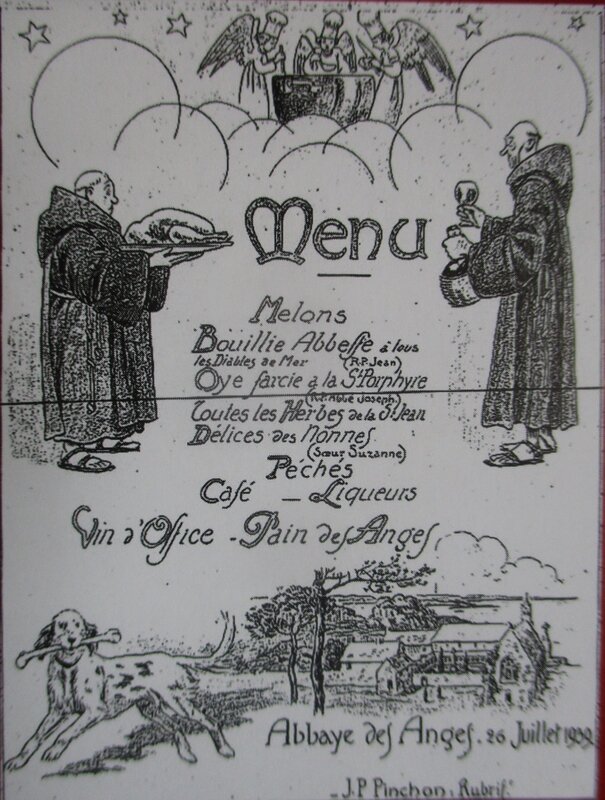 Menu
Melons
Bouillie Abbesse à tous
les Diables de Mer (R.P. Jean)
Oye farcie à la St Porphyre
(R.P. Abbé Joseph)
Toutes les Herbes de la St Jean
Délices des Nonnes
(Sœur Suzanne)
Péchés
Café _ Liqueurs
Vin d'Office - Pain des Anges
Abbaye des Anges. 26 Juillet 1939
_ J.P Pinchon, Rubrif.